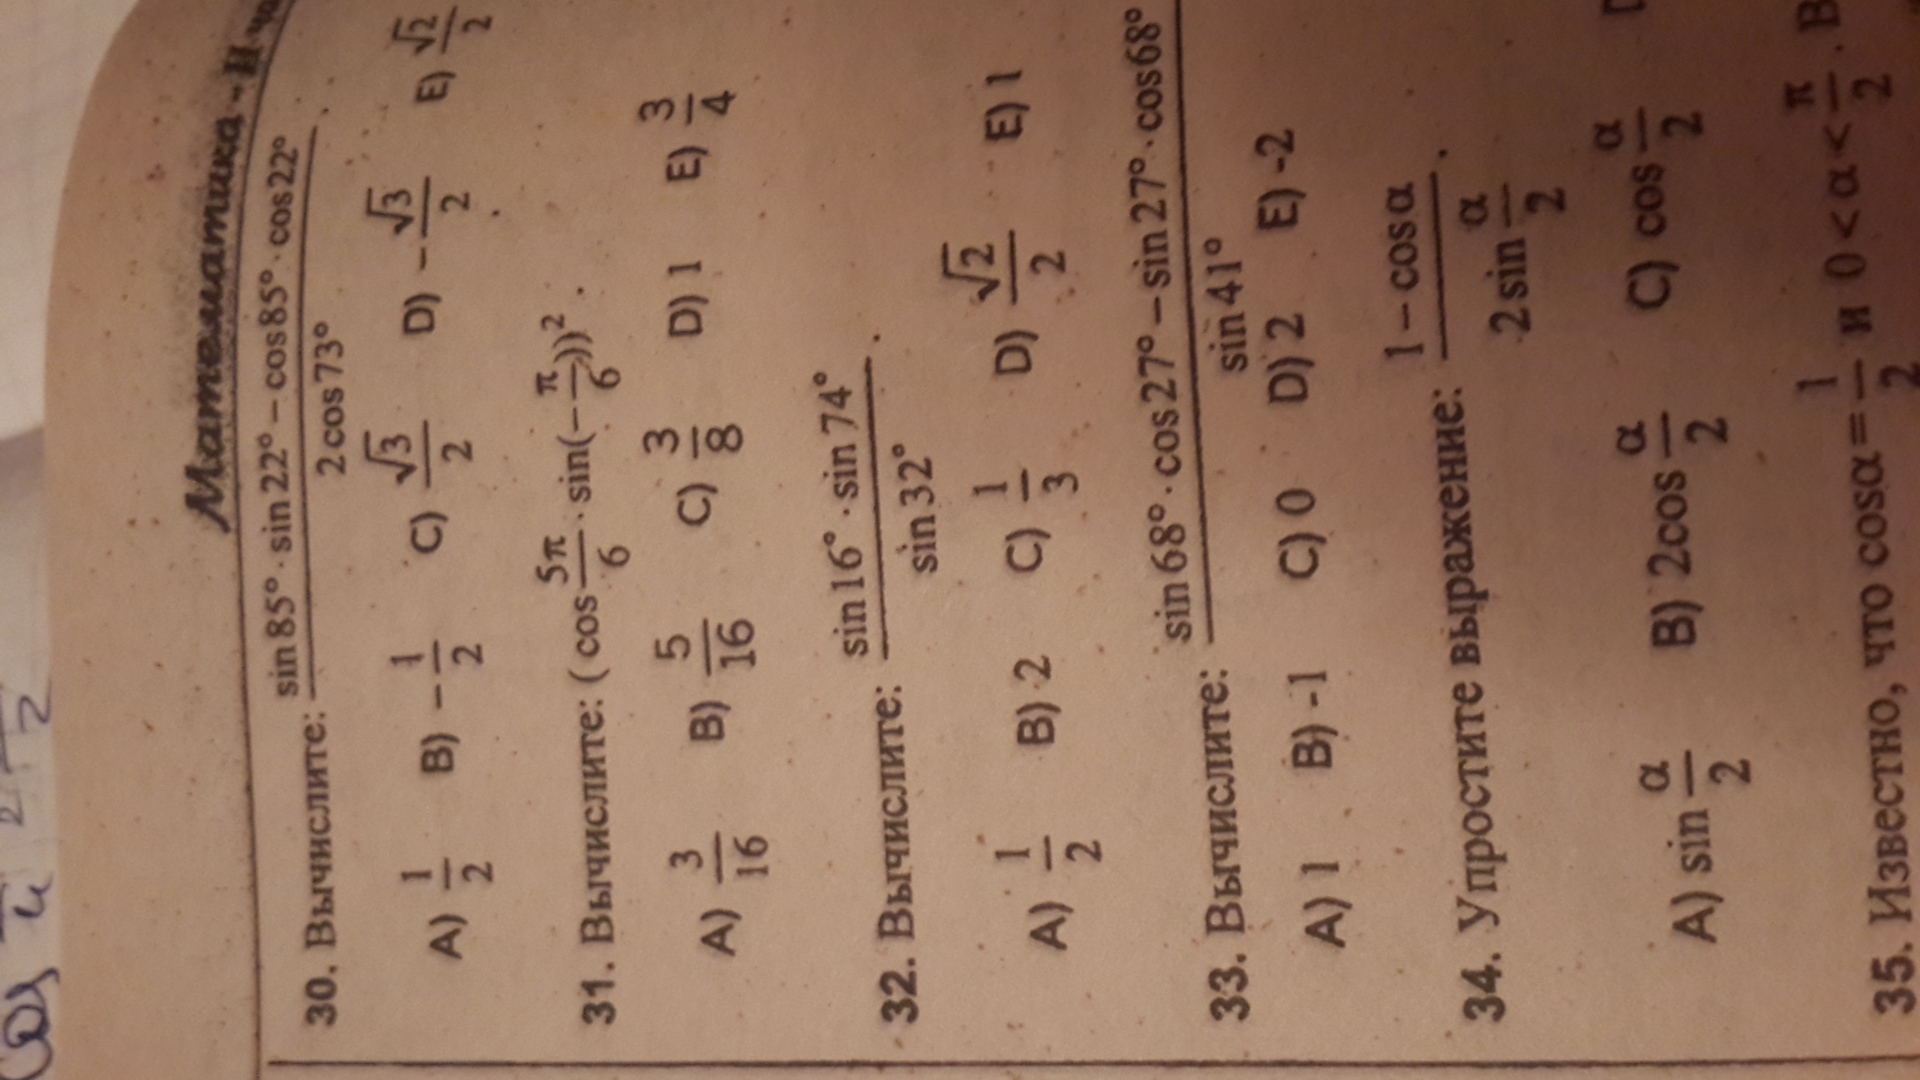 Математика - II
30. Вычислите: (sin 85° · sin 22° − cos 85° · cos 22°) / (2 cos 73°).
A) 1/2 B) −1/2 C) √3/2 D) −√3/2 E) √2/2
31. Вычислите: (cos 5π/6 · sin(−π/6))².
A) 3/16 B) 5/16 C) 3/8 D) 1 E) 3/4
32. Вычислите: (sin 16° · sin 74°) / (sin 32°).
A) 1/2 B) 2 C) 1/3 D) √2/2 E) 1
33. Вычислите: (sin 68° · cos 27° − sin 27° · cos 68°) / (sin 41°)
A) 1 B) -1 C) 0 D) 2 E) -2
34. Упростите выражение: (1 − cos α) / (2 sin α/2).
A) sin α/2 B) 2cos α/2 C) cos α/2
35. Известно, что cosα = 1/2 и 0 < α < π/2. В